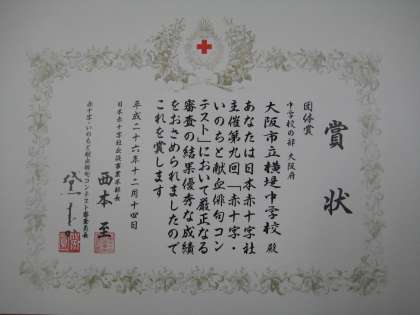 賞状
団体賞
中学校の部 大阪府
大阪市立横堤中学校 殿
あなたは日本赤十字社
主催第九回「赤十字・
いのちと献血俳句コン
テスト」において厳正なる
審査の結果優秀な成績
をおさめられましたので
これを賞します
平成二十六年十二月十四日
日本赤十字社血液事業本部長
西本 至
赤十字・いのちと献血俳句コンテスト審査員長